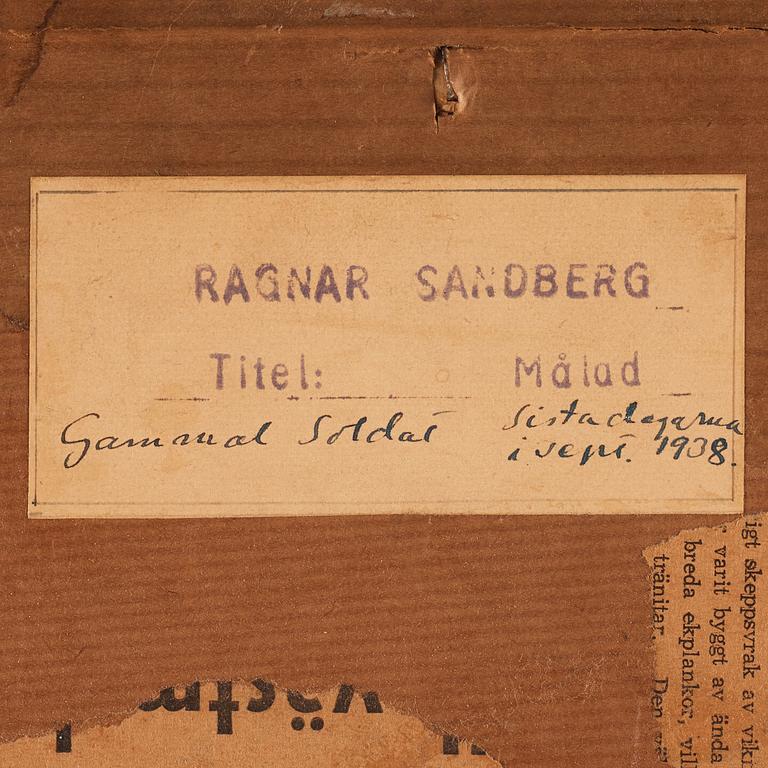 RAGNAR SANDBERG
Titel: Målad
Gammal Soldat sista dagarna
i sept. 1938.
igt skeppsvrak av
varit byggt av ända
breda ekplankor,
tränitar. Den